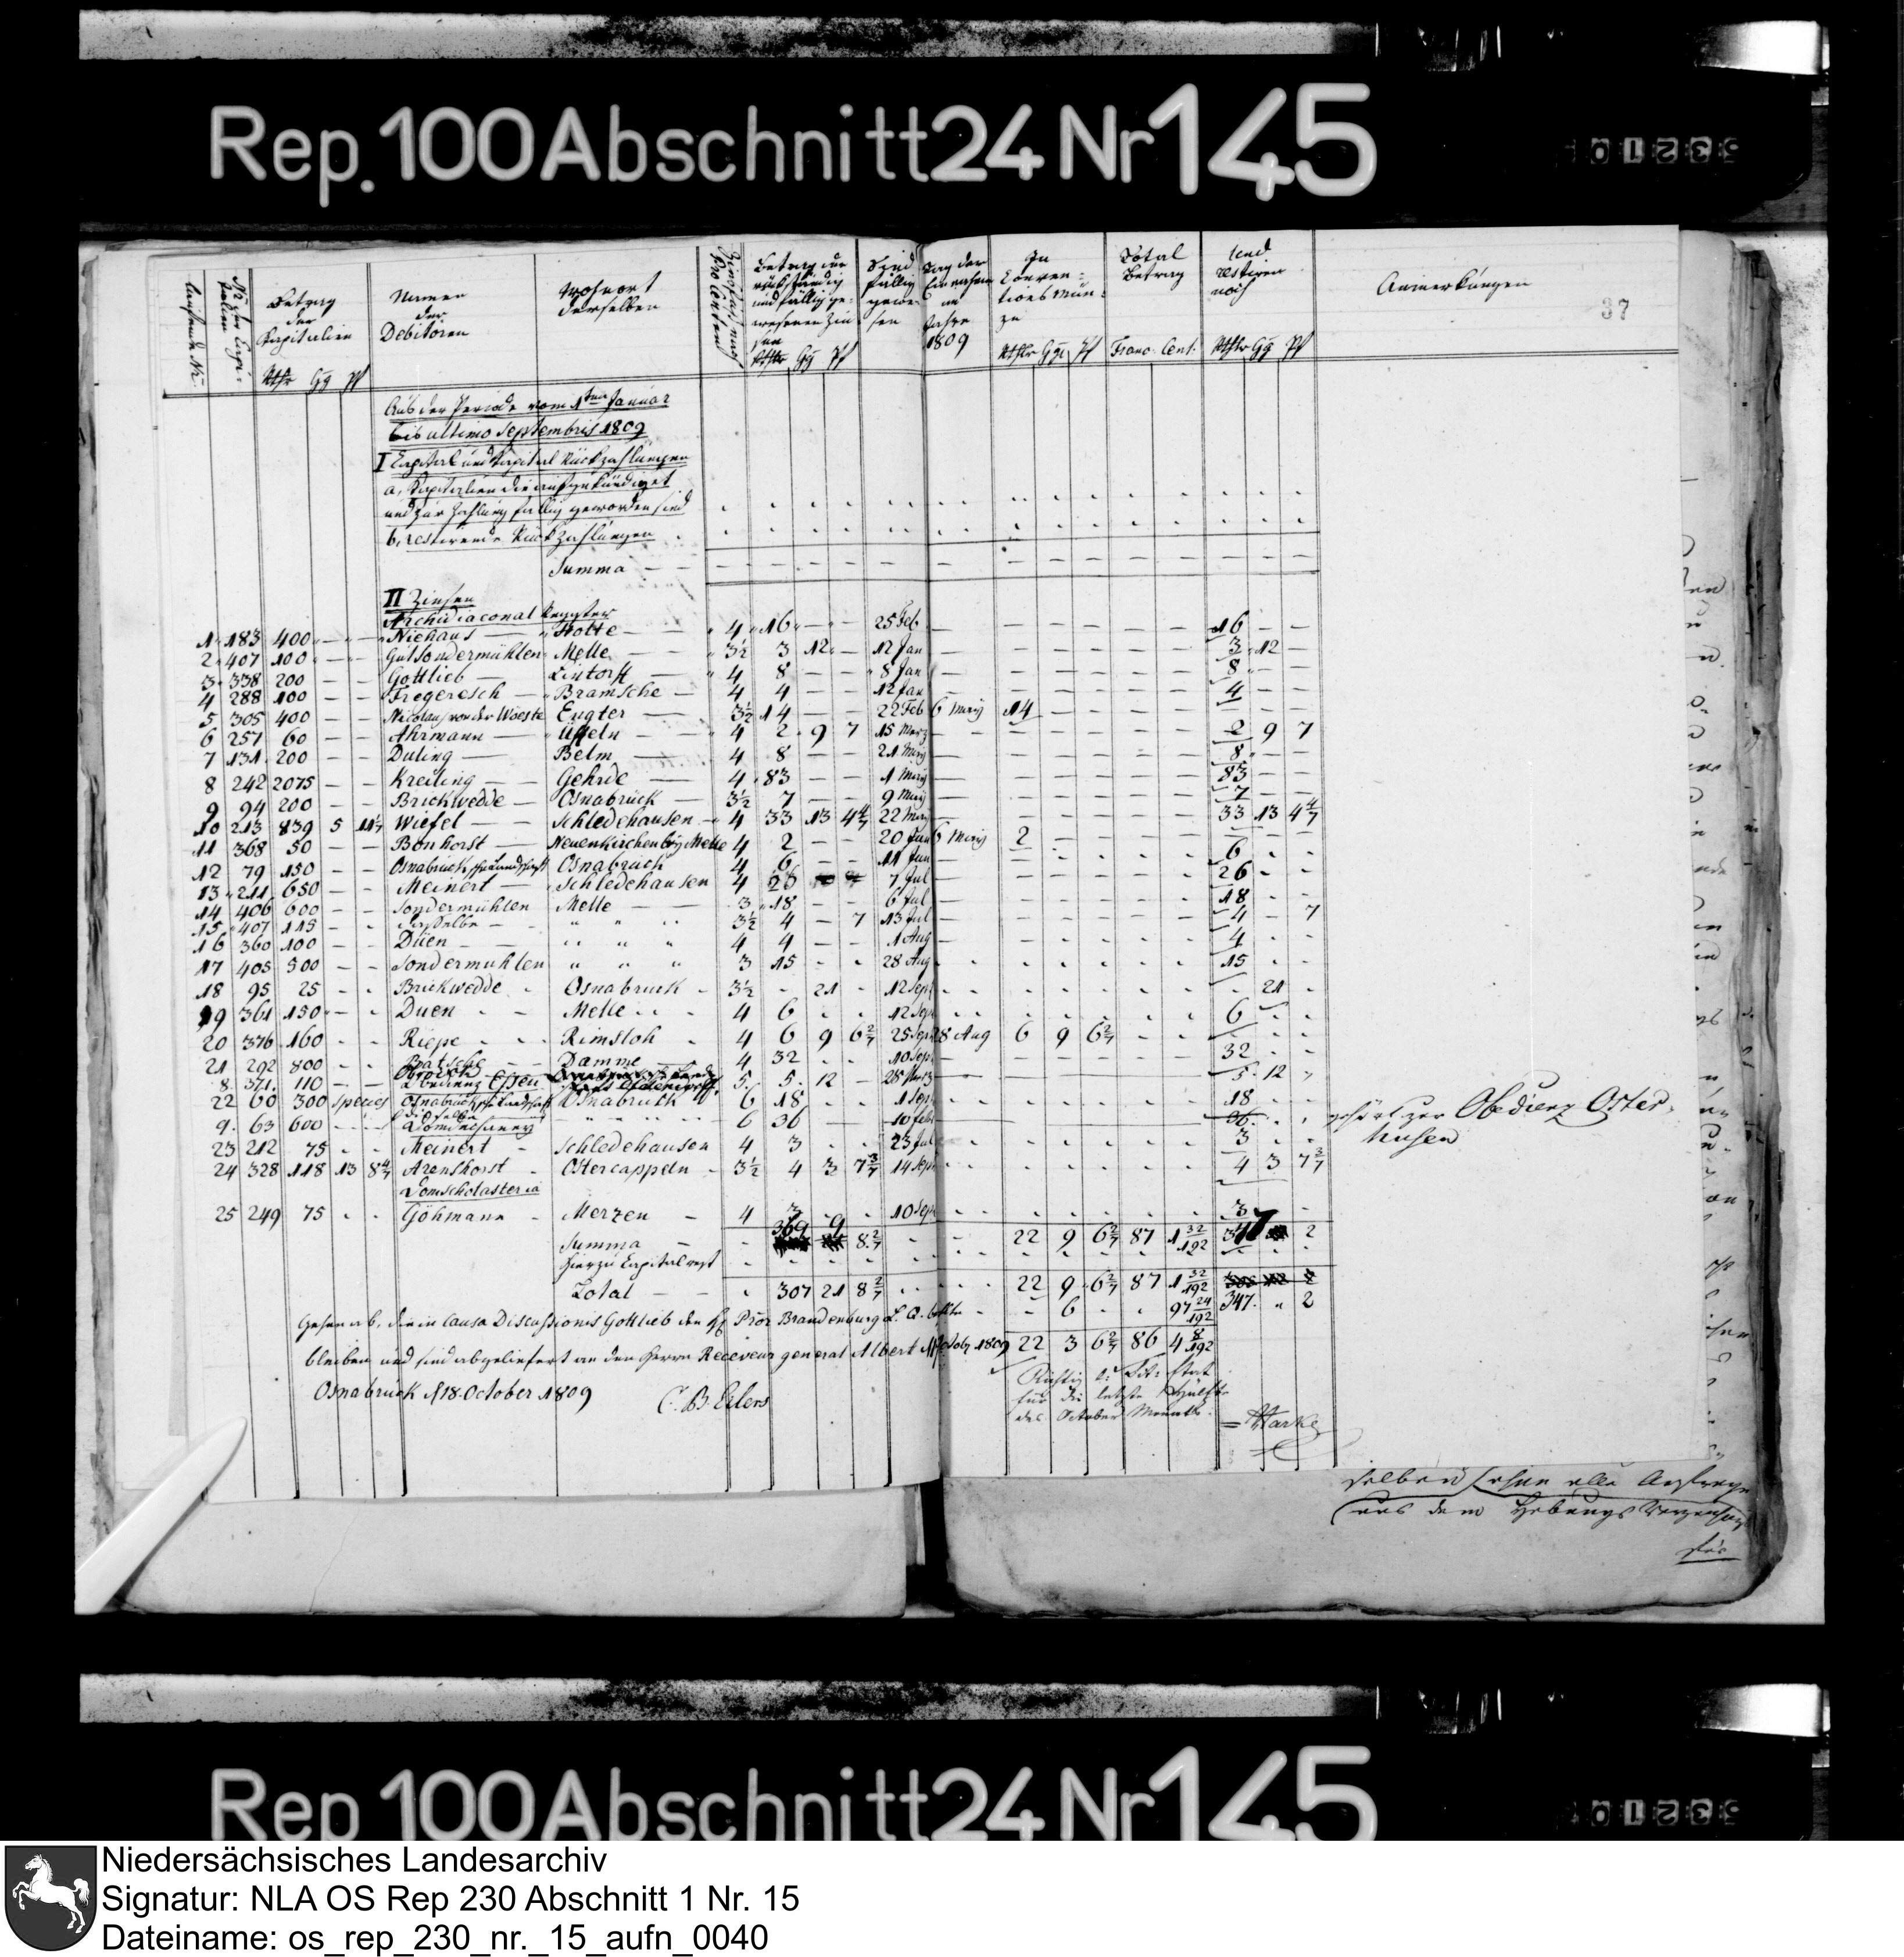 Rep. 100 Abschnitt 24 Nr 145
37
laufende Nr.
Nr. der Capitalien
Betrag der Kapitalien
Rthlr Gg pf
Namen der Debitoren
Wohnort derselben
Betrag der rückständig und fällig gewesenen Zinsen
Rthlr Gg pf
Sind fällig gewesen
Tag der Einnahme im Jahre 1809
In Conventions Münze
Rthlr Gg pf
Total Betrag
Franc. Cent.
Und restiren noch
Rthlr Gg pf
Anmerkungen
Aus der Periode vom 1ten Januar
bis ultimo Septembris 1809
I Capital und Capital Rückzahlungen
a, Kapitalien die aufgekündiget
und zur Zahlung fällig geworden sind
b, restirende Rückzahlungen
Summa
II Zinsen
Archidiaconal Register
1 183 400 Niehaus Holte 4 16 25 Feb 16
2 407 100 Gut Sondermühlen Melle 3½ 3 12 12 Jan 3 12
3 338 200 Gottlieb Lintorff 4 8 8 Jan 8
4 288 100 Fregeresch Bramsche 4 4 12 Jan 4
5 305 400 Nicolaus von der Woeste Engter 3½ 14 22 Feb 6 14
6 257 60 Ahrmann Üffeln 4 2 9 7 15 Merz 2 9 7
7 131 200 Duling Belm 4 8 21 8
8 242 2075 Kreiling Gehrde 4 83 1 83
9 94 200 Brickwedde Osnabrück 3½ 7 9 7
10 213 839 5 Wiefel Schledehausen 4 33 13 4 4/7 22 33 13 4 4/7
11 368 50 Bonhorst Neuenkirchen bey Melle 4 2 20 Jun 6 2
12 79 150 Osnabrücksche Landschaft Osnabrück 4 6 11 Jun 6
13 211 650 Meinert Schledehausen 4 26 7 Jul 26
14 406 600 Sondermühlen Melle 3 18 6 Jul 18
15 407 115 Dieselbe " " " 3½ 4 7 13 Jul 4 7
16 360 100 Düen " " " 4 4 1 Aug 4
17 405 500 Sondermuhlen " " " 3 15 28 Aug 15
18 95 25 Brickwedde Osnabruck 3½ 21 12 Sept 21
19 361 150 Duen Melle 4 6 12 Sep 6
20 376 160 Riepe Rimsloh 4 6 9 6 2/7 25 Sep 28 Aug 6 9 6 2/7
21 292 800 Damme 4 32 10 Sep 32
8 371 110 Obedienz Essen 5 5 12 28 5 12
22 60 300 species Osnabrücksche Landschaft Osnabruck 6 18 1 Sep 18
9 63 600 dieselbe " " " 6 36 10 Feb 36
gehört zur Obedienz Osterhusen
23 212 75 Meinert Schledehausen 4 3 23 Jul 3
24 328 118 13 8 4/7 Arenshorst Ostercappeln 3½ 4 3 7 3/7 14 Sept 4 3 7 3/7
Domscholasteria
25 249 75 Göhmann Merzen 4 3 10 Sep 3
Summa 369 9 8 2/7 22 9 6 2/7 87 1 32/192 347 2
Hierzu Capitalrest
Total 307 21 8 2/7 22 9 6 2/7 87 1 32/192
Gehen ab, die in Causa Discussionis Gottlieb den H. Pror Brandenburg 6 97 24/192 347 2
bleiben und sind abgeliefert an den Herrn Receveur general Albert October 1809 22 3 6 2/7 86 4 8/192
Osnabrück d 18. October 1809 C. B. Eilers
Richtig
für die letzte Hälfte
des October Monaths.
Marke
selben, ohne alle
aus dem Hebungs
Rep 100 Abschnitt 24 Nr 145
Niedersächsisches Landesarchiv
Signatur: NLA OS Rep 230 Abschnitt 1 Nr. 15
Dateiname: os_rep_230_nr._15_aufn_0040